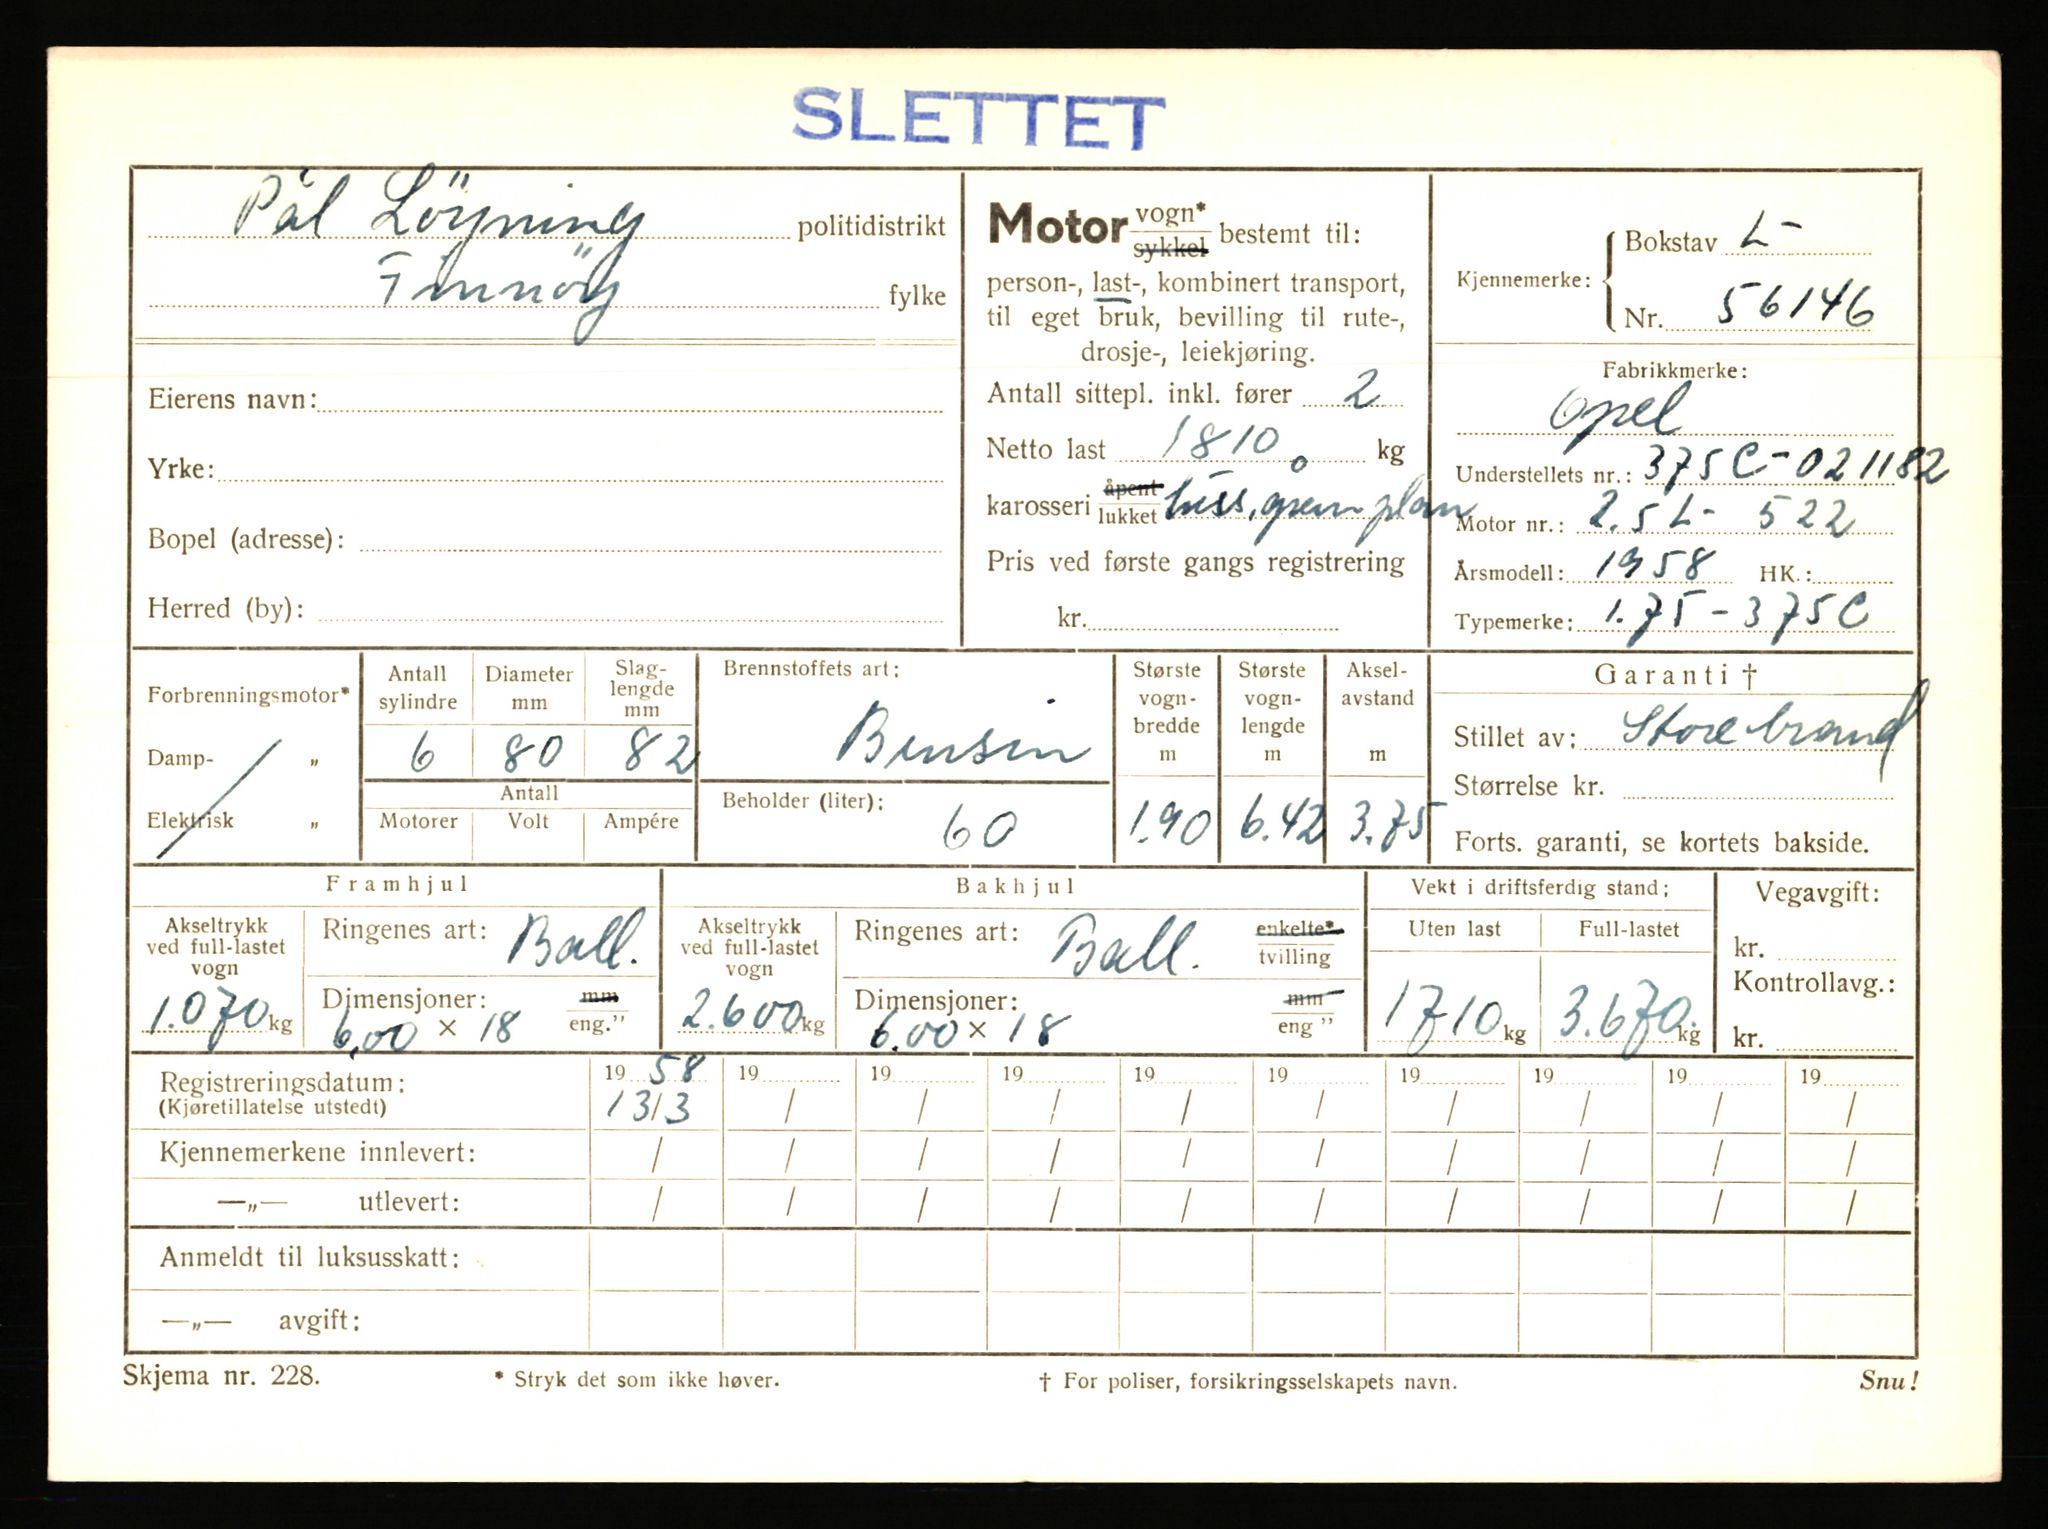 SLETTET
Pål Löyning politidistrikt
Finnöy fylke
Eierens navn:
Yrke:
Bopel (adresse):
Herred (by):
Motor vogn* sykkel bestemt til:
person-, last-, kombinert transport,
til eget bruk, bevilling til rute-,
drosje-, leiekjøring.
Antall sittepl. inkl. fører 2
Netto last 1810 kg
karosseri åpent lukket plan
Pris ved første gangs registrering
kr.
Kjennemerke: Bokstav L-
Nr. 56146
Fabrikkmerke:
Opel
Understellets nr.: 375C-021182
Motor nr.: 2.5L- 522
Årsmodell: 1958 HK.:
Typemerke: 1.75-375C
Forbrenningsmotor*
Damp- „
Elektrisk „
Antall sylindre
6
Diameter mm
80
Slag-
lengde
mm
82
Antall
Motorer Volt Ampére
Brennstoffets art:
Bensin
Beholder (liter):
60
Største
vogn-
bredde
m
1.90
Største
vogn-
lengde
m
6.42
Aksel-
avstand
m
3.75
Garanti †
Stillet av: Storebrand
Størrelse kr.
Forts. garanti, se kortets bakside.
Framhjul
Akseltrykk
ved full-lastet
vogn
1.070 kg
Ringenes art: Ball.
Dimensjoner: mm
6,00 × 18 eng.”
Bakhjul
Akseltrykk
ved full-lastet
vogn
2.600 kg
Ringenes art: Ball. enkelte* tvilling
Dimensjoner: mm
6.00 × 18 eng ”
Vekt i driftsferdig stand:
Uten last Full-lastet
1710 kg 3.670 kg
Vegavgift:
kr.
Kontrollavg.:
kr.
Registreringsdatum: 19 58 19 19 19 19 19 19 19 19 19
(Kjøretillatelse utstedt) 13/3 / / / / / / / / /
Kjennemerkene innlevert: / / / / / / / / / /
—„— utlevert: / / / / / / / / / /
Anmeldt til luksusskatt:
—„— avgift:
Skjema nr. 228. * Stryk det som ikke høver. † For poliser, forsikringsselskapets navn. Snu!